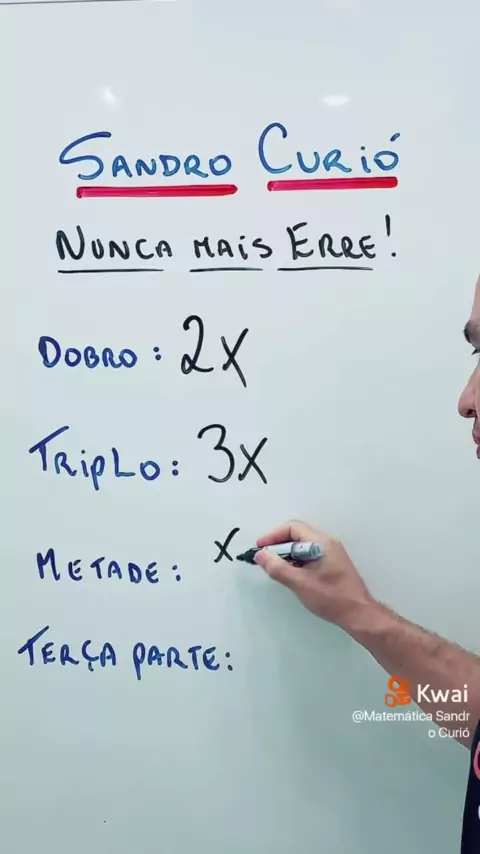 SANDRO CURIÓ
NUNCA MAIS ERRE!
DOBRO: 2x
TRIPLO: 3x
METADE: x
TERÇA PARTE:
Kwai
@Matemática Sandr
o Curió